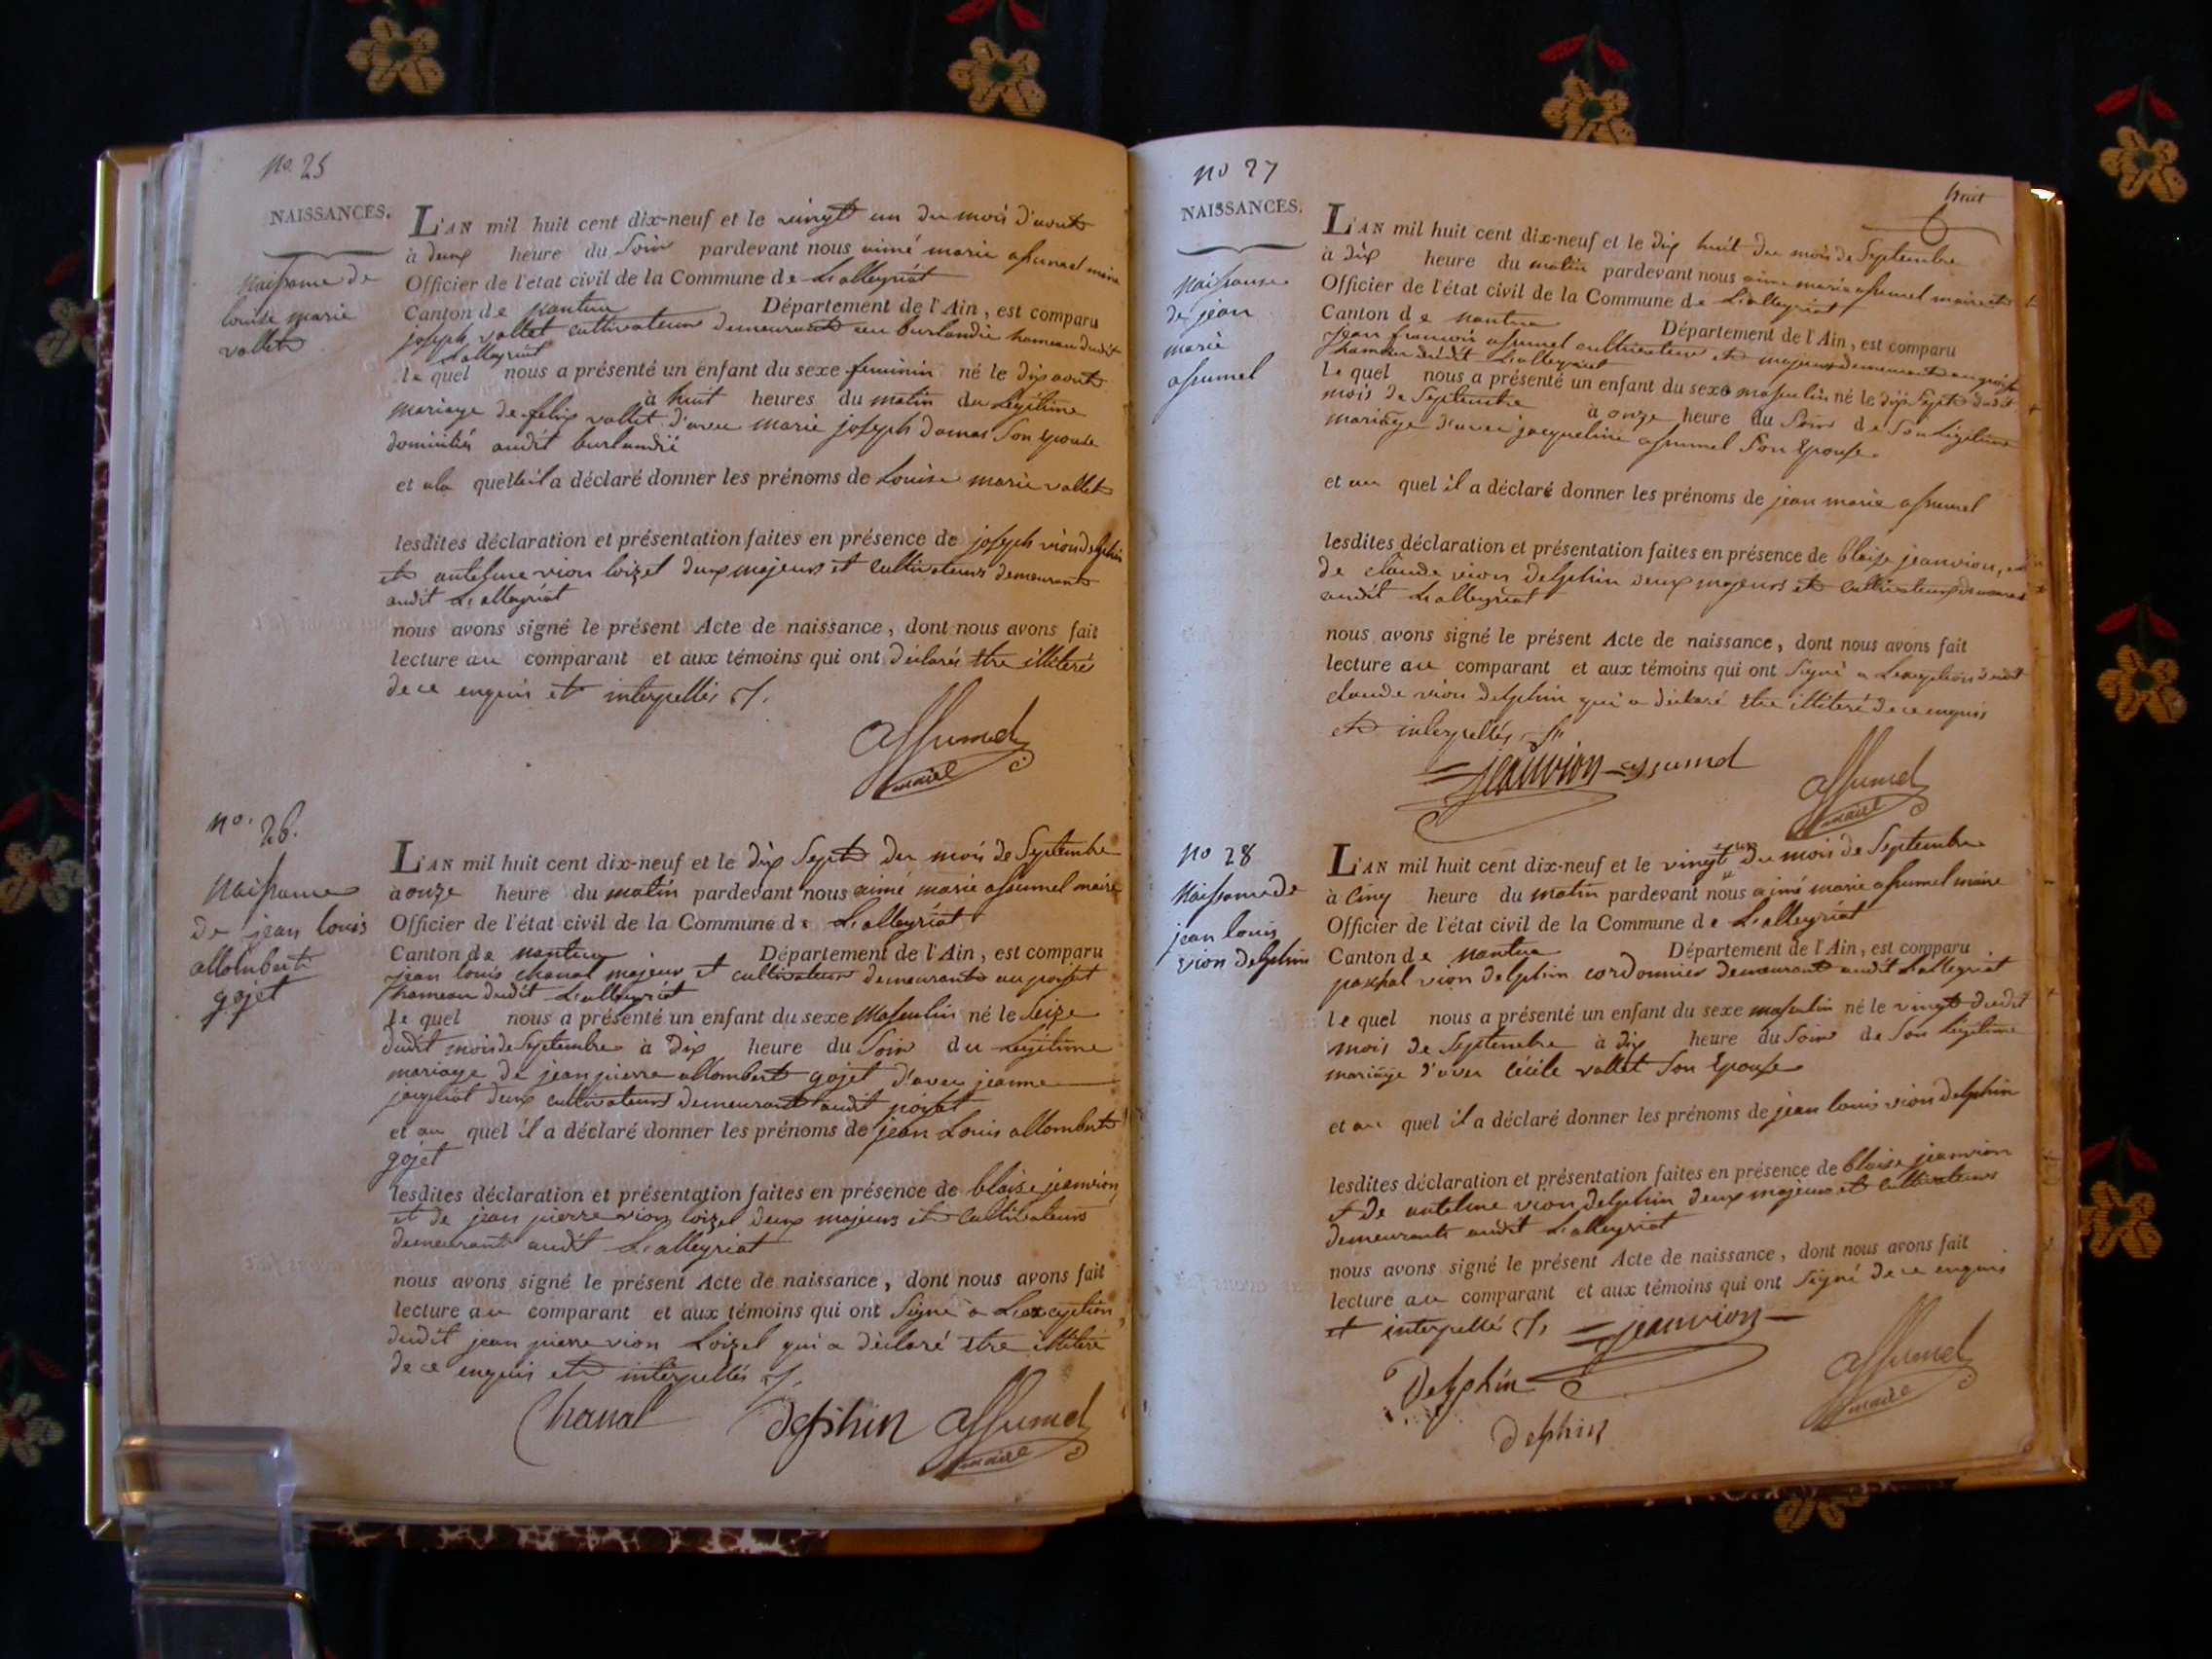 no. 25
NAISSANCES.
Naissance de
louise marie
vallet
L'AN mil huit cent dix-neuf et le vingt un du mois d'aout
à deux heure du soir pardevant nous aimé marie assumel maire
Officier de l'état civil de la Commune de Lalleyriat
Canton de nantua Département de l'Ain, est comparu
joseph vallet cultivateur demeurant au burlandié hameau dudit
Lalleyriat
le quel nous a présenté un enfant du sexe feminin né le dix aout
à huit heures du matin du Legitime
mariage de felix vallet d'avec marie joseph damas son Epouse
domiciliés audit burlandié
et ala quelle il a déclaré donner les prénoms de Louise marie vallet
lesdites déclaration et présentation faites en présence de joseph vion delphin
et antelme vion loizel deux majeurs et cultivateurs demeurant
audit Lalleyriat
nous avons signé le présent Acte de naissance, dont nous avons fait
lecture au comparant et aux témoins qui ont déclarés être illiterés
de ce enquis et interpellés
assumel
maire
no. 26.
Naissance
de jean louis
allombert
gojet
L'AN mil huit cent dix-neuf et le dix sept du mois de Septembre
à onze heure du matin pardevant nous aimé marie assumel maire
Officier de l'état civil de la Commune de Lalleyriat
Canton de nantua Département de l'Ain, est comparu
jean louis chanal majeur et cultivateur demeurant au poisat
hameau dudit Lalleyriat
le quel nous a présenté un enfant du sexe masculin né le seize
dudit mois de Septembre à dix heure du soir du Legitime
mariage de jean pierre allombert gojet d'avec jeanne
jacquiot deux cultivateurs demeurant audit poisat
et au quel il a déclaré donner les prénoms de jean Louis allombert
gojet
lesdites déclaration et présentation faites en présence de blaise jeanvion
et de jean pierre vion loizel deux majeurs et cultivateurs
demeurant audit Lalleyriat
nous avons signé le présent Acte de naissance, dont nous avons fait
lecture au comparant et aux témoins qui ont signé a Lexception
dudit jean pierre vion Loizel qui a déclaré être illiteré
de ce enquis et interpellés
Chanal delphin assumel
maire
no 27
huit
NAISSANCES.
Naissance
de jean
marie
assumel
L'AN mil huit cent dix-neuf et le dix huit du mois de Septembre
à dix heure du matin pardevant nous aimé marie assumel maire et
Officier de l'état civil de la Commune de Lalleyriat
Canton de nantua Département de l'Ain, est comparu
Jean francois assumel cultivateur et majeur demeurant au poisat
hameau dudit Lalleyriat
le quel nous a présenté un enfant du sexe masculin né le dix sept dudit
mois de Septembre à onze heure du soir de son Legitime
mariage d'avec jacqueline assumel son Epouse
et au quel il a déclaré donner les prénoms de jean marie assumel
lesdites déclaration et présentation faites en présence de blaise jeanvion, et
de claude vion delphin deux majeurs et cultivateurs demeurant
audit Lalleyriat
nous avons signé le présent Acte de naissance, dont nous avons fait
lecture au comparant et aux témoins qui ont signé a Lexception dudit
claude vion delphin qui a déclaré être illiteré de ce enquis
et interpellés
jeanvion assumel assumel
maire
no 28
Naissance de
jean louis
vion delphin
L'AN mil huit cent dix-neuf et le vingt un du mois de Septembre
à cinq heure du matin pardevant nous aimé marie assumel maire
Officier de l'état civil de la Commune de Lalleyriat
Canton de nantua Département de l'Ain, est comparu
paschal vion delphin cordonnier demeurant audit Lalleyriat
le quel nous a présenté un enfant du sexe masculin né le vingt dudit
mois de Septembre à dix heure du soir de son Legitime
mariage d'avec Cécile vallet son Epouse
et au quel il a déclaré donner les prénoms de jean louis vion delphin
lesdites déclaration et présentation faites en présence de blaise jeanvion
et de antelme vion delphin deux majeurs et cultivateurs
demeurants audit Lalleyriat
nous avons signé le présent Acte de naissance, dont nous avons fait
lecture au comparant et aux témoins qui ont signé de ce enquis
et interpellé jeanvion
Delphin assumel
maire
delphin